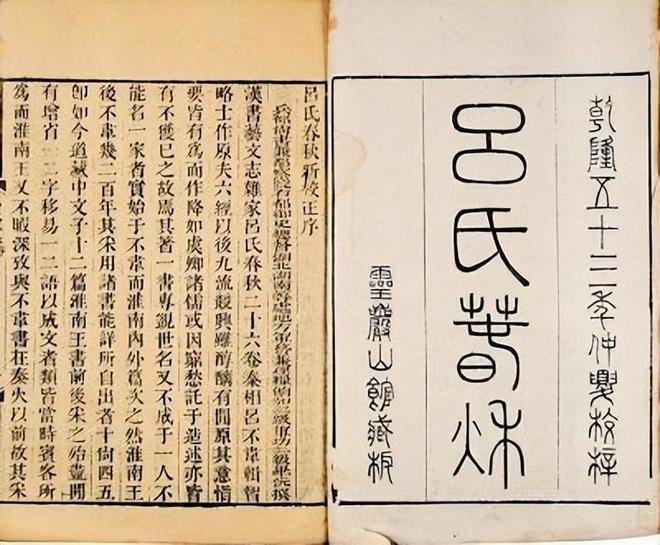 乾隆五十三年仲夏校梓
呂氏春秋
靈巖山館藏板
呂氏春秋新校正序
兵部尚書兼都察院右都御史總督湖北湖南等處地方軍務兼理糧餉 級軍功 級畢沅撰
漢書藝文志雜家呂氏春秋二十六卷秦相呂不韋輯智
略士作原夫六經以後九流競興雖醇醨有間原其意恉
要皆有爲而作降如虞卿諸儒或因窮愁託于造述亦皆
有不獲已之故焉其著一書專覬世名又不成于一人不
能名一家者實始于不韋而淮南內外篇次之然淮南王
後不韋幾二百年其采用諸書能詳所自出者十尚四五
即如今道藏中文子十二篇淮南王書前後采之殆盡間
有增省一二字移易一二語以成文者類皆當時賓客所
爲而淮南王又不暇深攷與不韋書在秦火以前故其采